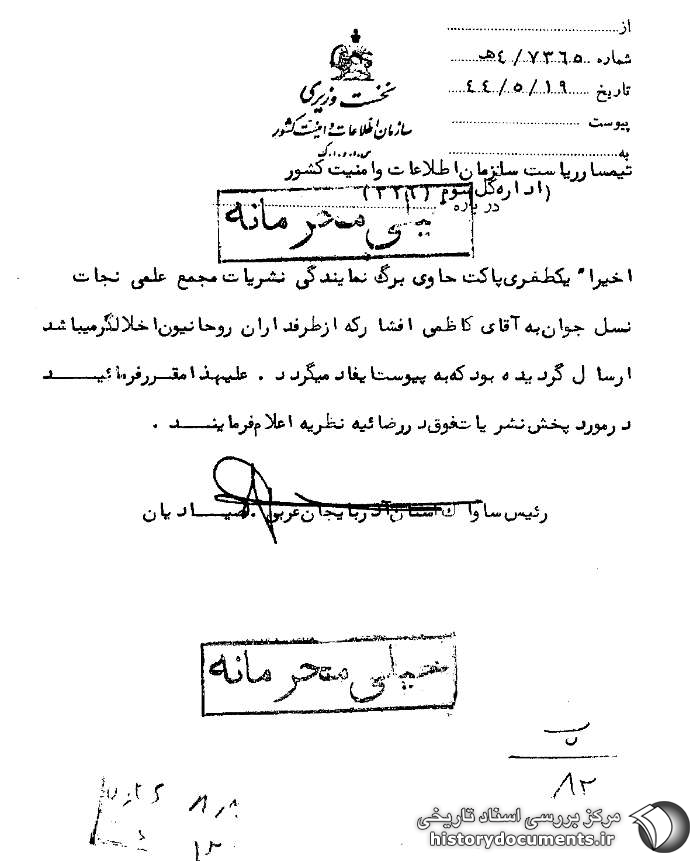 از
شماره ۷۳۶۵/۴ه‍
تاریخ ۴۴/۵/۱۹
پیوست
به
نخست وزیری
سازمان اطلاعات و امنیت کشور
س.ا.و.ا.ک
تیمسار ریاست سازمان اطلاعات و امنیت کشور
(اداره کل سوم (۳۲۲)
درباره
خیلی محرمانه
اخیرا" یکطغری پاکت حاوی برگ نمایندگی نشریات مجمع علمی نجات
نسل جوان به آقای کاظمی افشار که از طرفداران روحانیون اخلالگر میباشد
ارسال گردیده بود که به پیوست ایفاد میگردد . علیهذا مقرر فرمائید
در مورد پخش نشریات فوق در رضائیه نظریه اعلام فرمایند .
رئیس ساواک استان آذربایجان غربی . صیادیان
خیلی محرمانه
ب
۸۲
مرکز بررسی اسناد تاریخی
historydocuments.ir